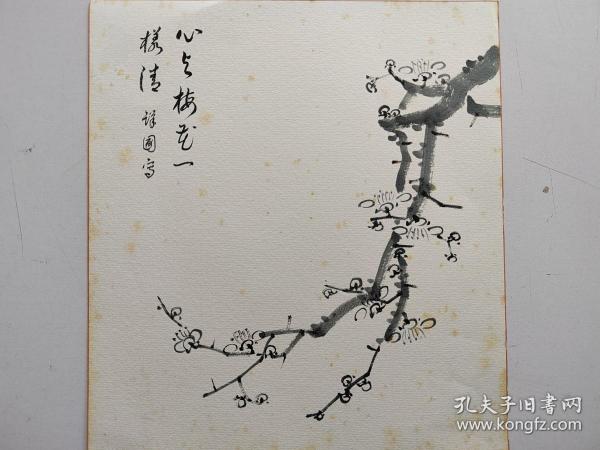 心与梅花一
樣清 祥園写
孔夫子旧书网
www.kongfz.com